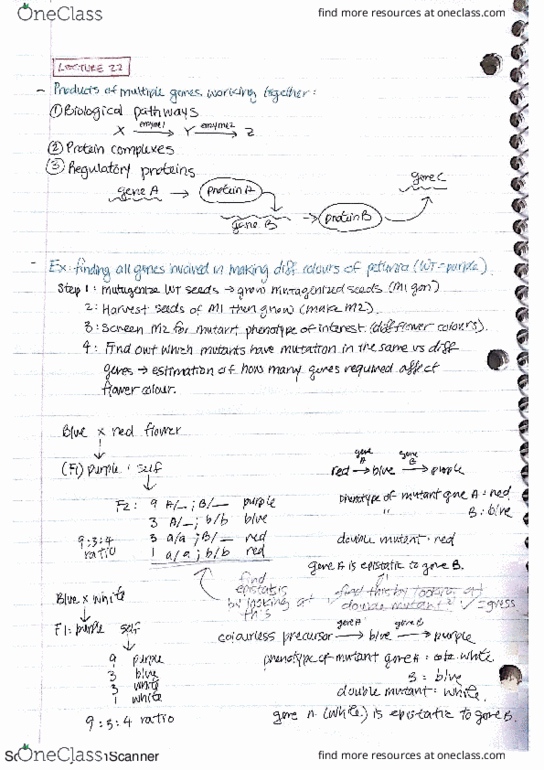 OneClass
find more resources at oneclass.com
LECTURE 22
- Products of multiple genes working together:
① Biological pathways
X enzyme1 → Y enzyme2 → Z
② Protein complexes
③ Regulatory proteins
gene A → protein A
gene B → protein B
gene C
- Ex: finding all genes involved in making diff colours of petunia (WT = purple)
Step 1: mutagenize WT seeds → grow mutagenized seeds (M1 gen)
2: Harvest seeds of M1 then grow (make M2)
3: Screen M2 for mutant phenotype of interest (diff flower colours).
4: Find out which mutants have mutation in the same vs diff
genes → estimation of how many genes required affect
flower colour.
Blue x red flower
(F1) purple self
F2: 9 A/_; B/_ purple
3 A/_; b/b blue
3 a/a; B/_ red
1 a/a; b/b red
9:3:4
ratio
red gene A → blue gene B → purple
phenotype of mutant gene A: red
" B: blue
double mutant: red
gene A is epistatic to gene B.
find
epistatis
by looking at
this
find this by looking at
double mutant
= guess
Blue x white
F1: purple self
9 purple
3 blue
3 white
1 white
9:3:4 ratio
colourless precursor gene A → blue gene B → purple
phenotype of mutant gene A: white
B: blue
double mutant: white.
gene A (white) is epistatic to gene B.
OneClass
Scanner
find more resources at oneclass.com